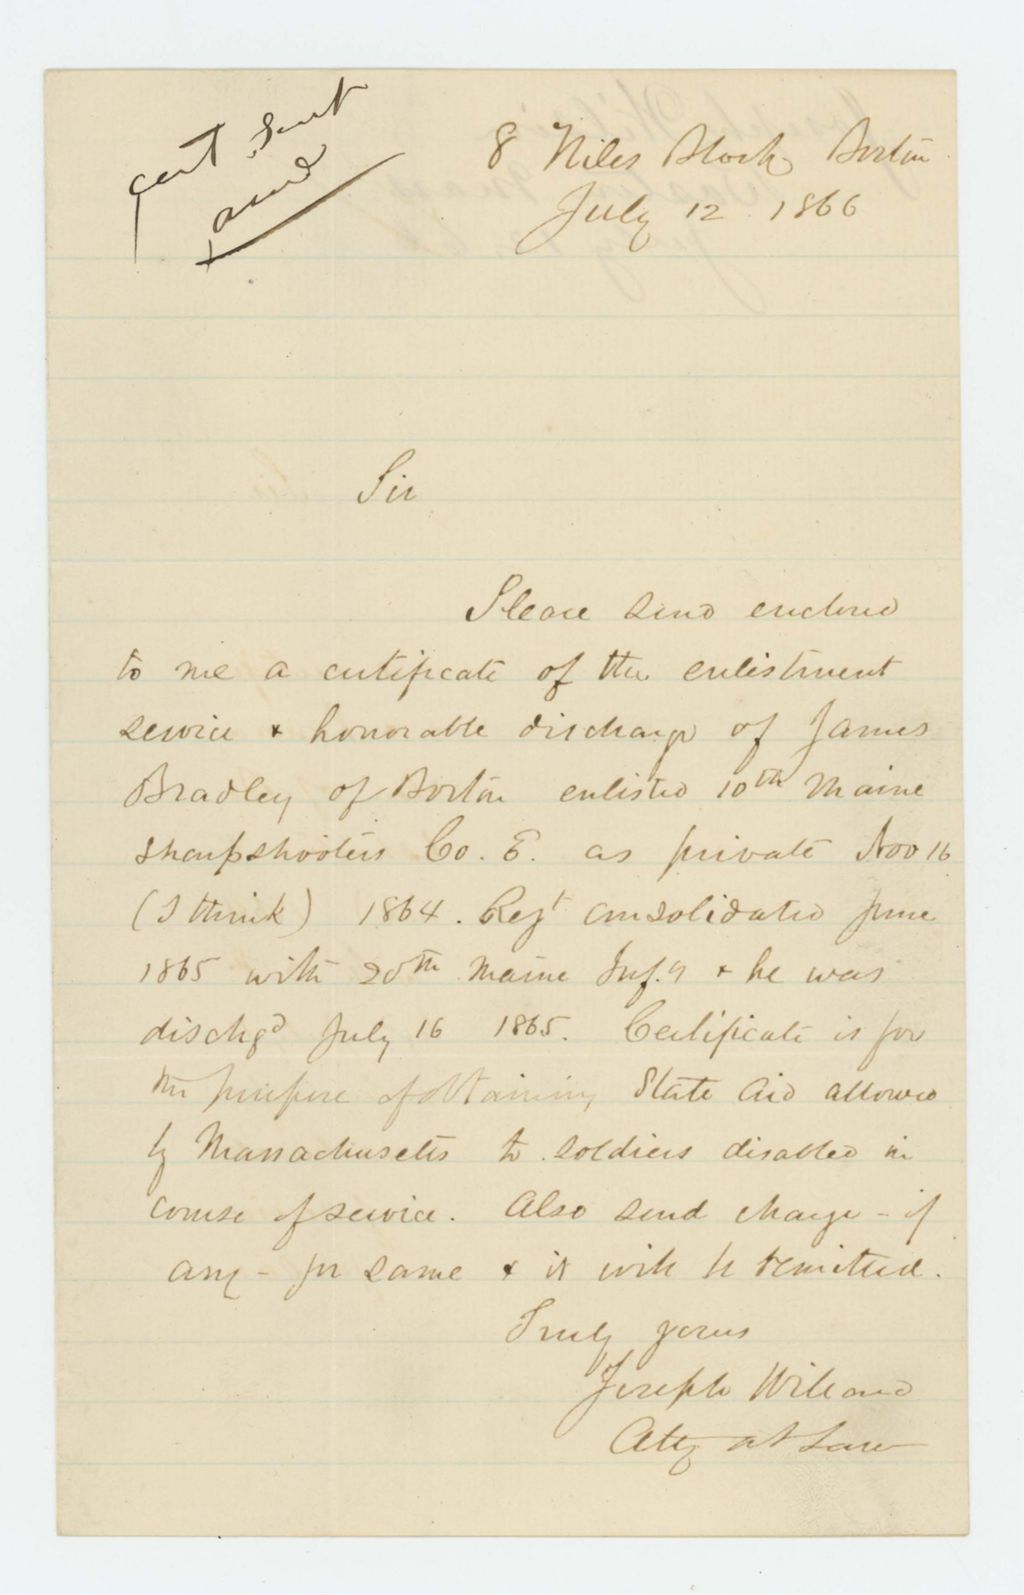 cert sent
8 Niles Block, Boston
July 12 1866
Sir
Please send enclosed
to me a certificate of the enlistment
service & honorable discharge of James
Bradley of Boston enlisted 10th Maine
Sharpshooters Co. E. as private Nov 16
(I think) 1864. Regt consolidated June
1865 with 20th Maine Inf.y & he was
dischgd July 16 1865. Certificate is for
the purpose of obtaining State Aid allowed
by Massachusetts to soldiers disabled in
course of service. Also send charge - if
any - for same & it will be remitted.
Truly yours
Joseph Willard
Atty at Law